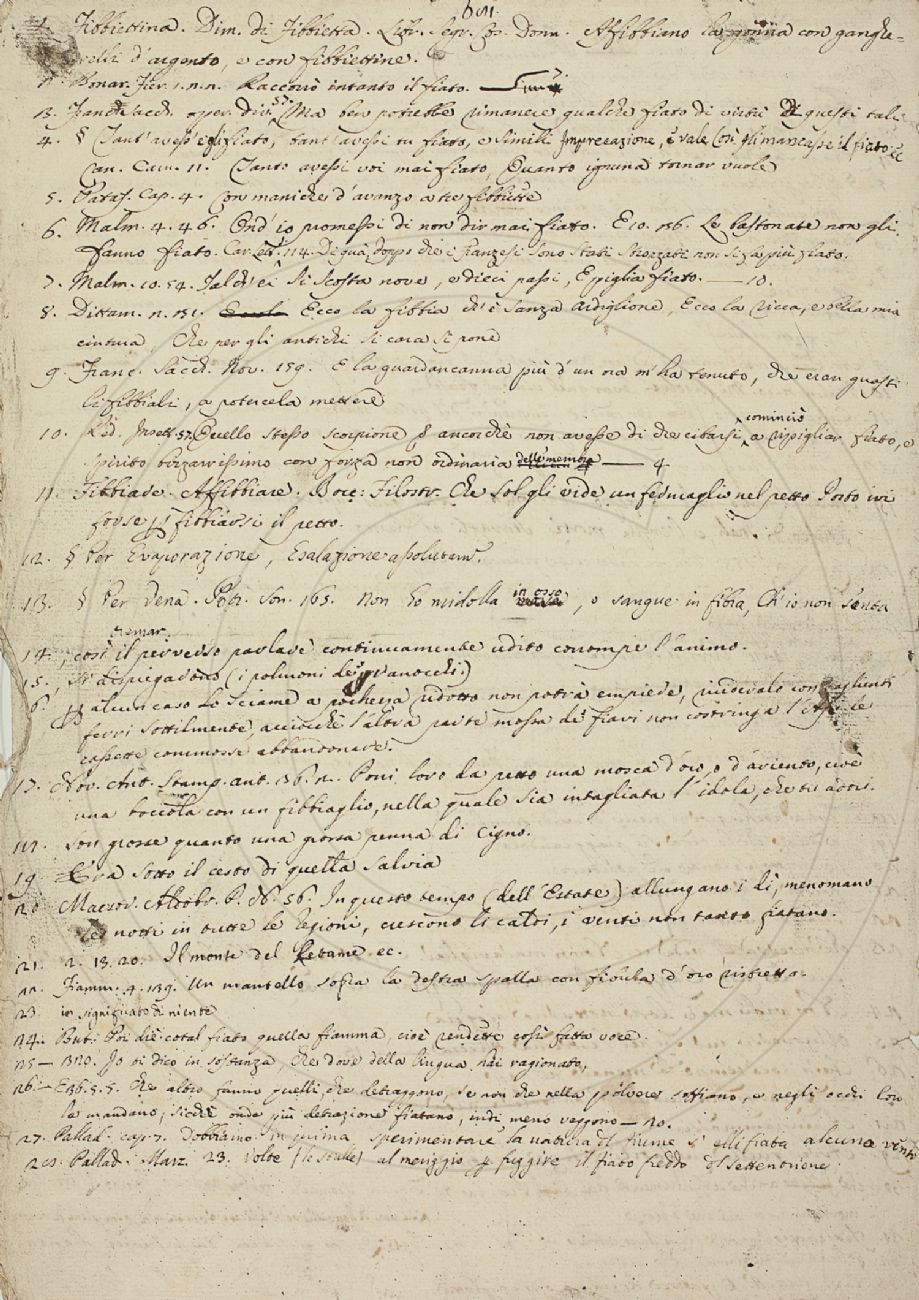 651.
1. Fibbiettina. Dim. di Fibbietta. Libr. Segr. Cos. Donn. Affibbiano la gonna con ganghe=
relli d'argento, e con fibbiettine.
2. Bonar. Fier. 1. Raccorrò intanto il fiato.
3. Franc. Sacch. oper. div. 57. Ma ben potrebbe rimanere qualche fiato di virtù di questi tali
4. § Tant' avess' egli fiato, tant' avessi tu fiato, e simili Imprecazione, e vale Così gli mancasse il fiato ec
Can. Carn. 11. Tanto avessi voi mai fiato, Quanto ignuna tornar vuole
5. Pataf. Cap. 4. Con maniche d'avanzo a tre fibbiette
6. Malm. 4. 46. Ond' io promessi di non dir mai fiato. E 10. Le bastonate non gli
fanno fiato. Car. Lett. 114. Di quà, doppo che i Franzesi sono stati strozzati non si fa più fiato.
7. Malm. 10. 54. Talch' ei si scosta nove, e dieci passi, E piglia fiato. — 10.
8. Dittam. Ecco la fibbia ch' è sanza ardiglione, Ecco la ricca, e bella mia
cintura, Che per gli antichi si cara si pone
9. Franc. Sacch. Nov. 159. E la guardancanna più d'un ora m' ha tenuto, che eran guasti
li fibbiali, a potercela mettere
10. Red. Insett. 57. Quello stesso scorpione ancorchè non avesse di che cibarsi, cominciò a ripigliar fiato, e
spirito bizzarrissimo con forza non ordinaria — 4
11. Fibbiare. Affibbiare. Bocc. Filostr. Che sol gli vide un fermaglio nel petto Posto ivi
forse per fibbiarsi il petto.
12. § Per Evaporazione, Esalazione assolutam.
13. § Per Vena. Petr. Son. 165. Non ho midolla in osso, o sangue in fibra, Ch' io non senta
tremar.
14. , così il perverso parlare continuamente udito corrompe l'animo.
15. , si dispiegarono (i polmoni de' ranocchi)
16. per alcun caso lo sciame a pochezza ridotto non potrà empiere, riducralo con taglienti
ferri sottilmente, acciocchè l'altra parte mossa de' fiari non costringa l'
cassette commosse abbandonare.
17. Nov. Ant. Stamp. ant. 36. 2. Poni loro da petto una mosca d'oro, o d'ariento, cioè
una boccola con un fibbiaglio, nella quale sia intagliata l'idola, che tu adori.
18. son grosse quanto una grossa penna di Cigno.
19. Era sotto il cesto di quella Salvia
20. Maestr. Aldobr. P. N. 56. In questo tempo (dell' Estate) allungano i dì, menomano
le notti in tutte le regioni, crescono li caldi, i venti non tanto fiatano.
21. 2. 13. 20. Il monte del letame ec.
22. Fiamm. 4. 139. Un mantello sopra la destra spalla con fibula d'oro ristretto.
23. in significato di niente
24. But. Poi diè cotal fiato quella fiamma, cioè rendette così fatta voce.
25 — 320. Io vi dico in sostanza, che dove della lingua hai ragionato,
26 — E 36. 5. 5. Che altro fanno quelli, che detraggono, se non che nella polvere soffiano, e negli occhi loro
la mandano, sicchè onde più detrazione fiatano, indi meno veggono — 10.
27. Pallad. cap. 7. Dobbiamo in prima sperimentare la natura del fiume s' elli fiata alcuna venti
28. Pallad. Marz. 23. Volte (le stalle) al meriggio per fuggire il fiato freddo del settentrione